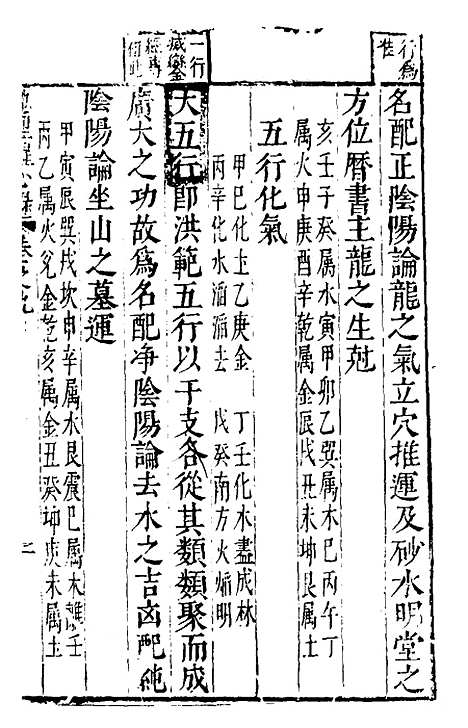 行爲
佳
名配正陰陽論龍之氣立穴推運及砂水明堂之
方位曆書主龍之生尅
亥壬子癸属水寅甲卯乙巽属木巳丙午丁
属火申庚酉辛乾属金辰戌丑未坤艮属土
五行化氣
甲巳化土乙庚金
丁壬化木盡成林
丙辛化水滔滔去
戊癸南方火焔明
一行
滅蠻
經專
大五行即洪範五行以干支各從其類類聚而成
廣大之功故爲名配净陰陽論去水之吉凶配純
陰陽論坐山之墓運
甲寅辰巽戌坎申辛属水艮震巳属木離壬
丙乙属火兊金乾亥属金丑癸坤庚未属土